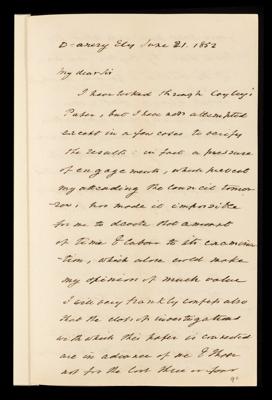 Deanery Ely June 21. 1852
My dear Sir
I have looked through Cayley's
Paper, but I have not attempted
except in a few cases to verify
the results: in fact a pressure
of engagements, which prevent
my attending the Council tomor-
row, has made it impossible
for me to devote that amount
of time & labour to its examina-
-tion, which alone could make
my opinion of much value
I will very frankly confess also
that the class of investigations
with which this paper is connected
are in advance of me & I have
not for the last three or four